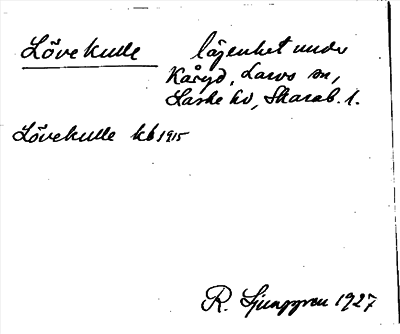 Lövekulle lägenhet under
Kåryd, Larvs sn,
Laske hd, Skarab. l.
Lövekulle kb 1915
R. Ljunggren 1927